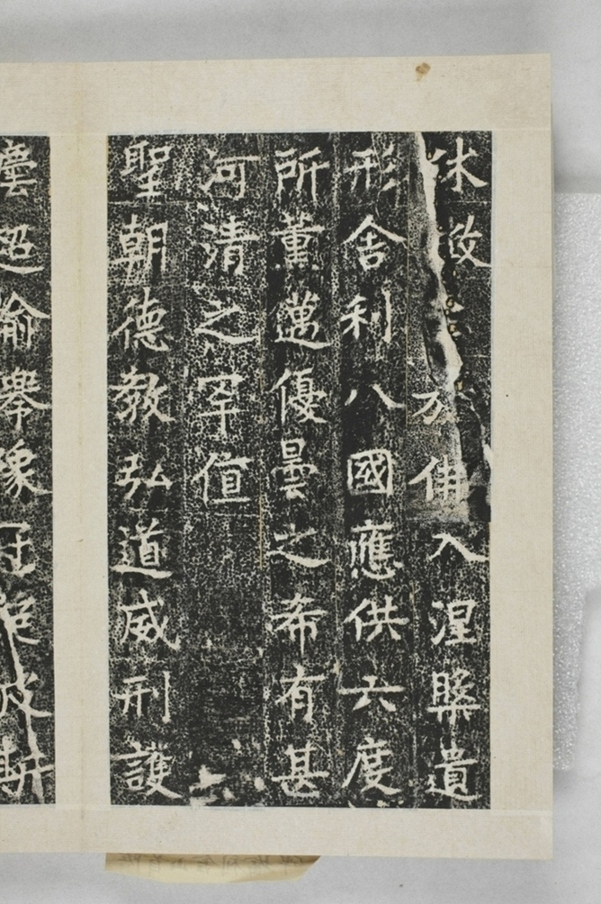 休於佛入涅槃遺
形舍利八國應供六度
所薰邁優曇之希有甚
河清之罕值
聖朝德教弘道威刑護
舉像